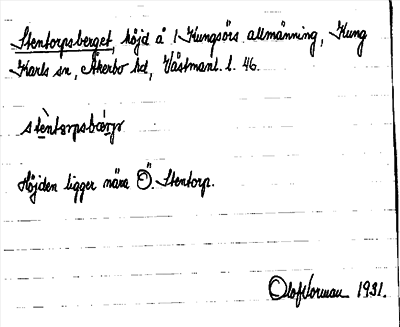 Stentorpsberget, höjd å Kungsörs allmänning, Kung
Karls sn, Åkerbo hd, Västmanl. l. 46.
Höjden ligger nära Ö. Stentorp.
Olof Norman 1931.